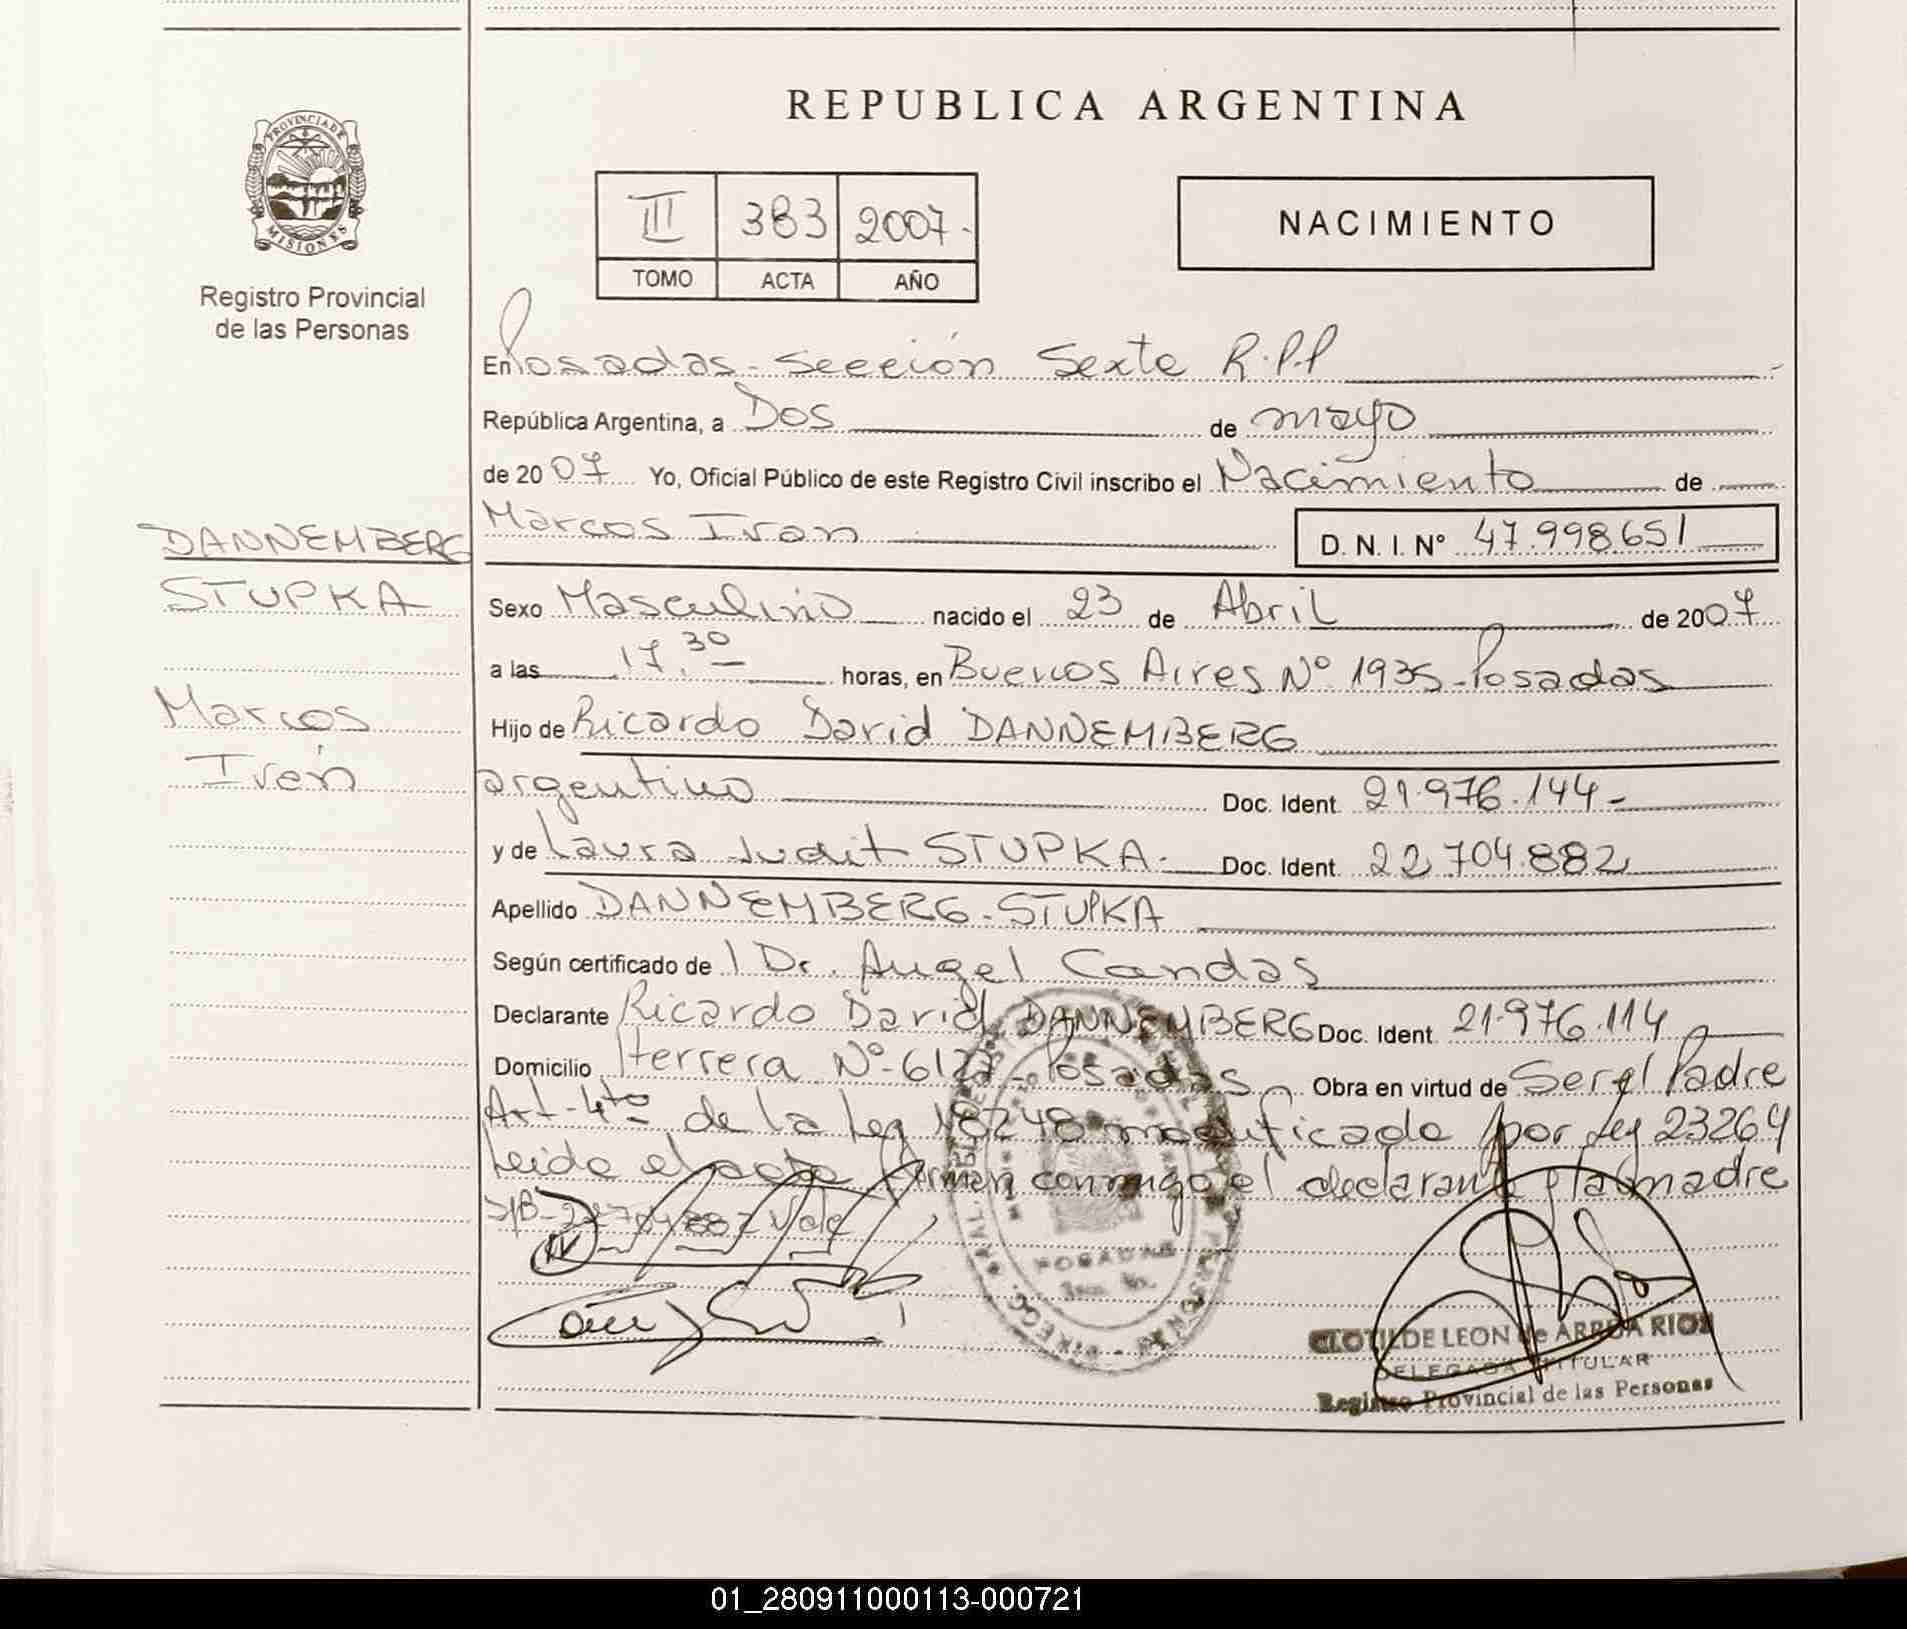 REPUBLICA ARGENTINA
PROVINCIA DE MISIONES
Registro Provincial
de las Personas
III 383 2007.
TOMO ACTA AÑO
NACIMIENTO
En Posadas - Sección Sexta R.P.P
República Argentina, a Dos de mayo
de 2007 Yo, Oficial Público de este Registro Civil inscribo el Nacimiento de
DANNEMBERG
STUPKA
Marcos
Iván
Marcos Ivan D. N. I. Nº 47.998651
Sexo Masculino nacido el 23 de Abril de 2007
a las 17.30 horas, en Buenos Aires Nº 1935 - Posadas
Hijo de Ricardo David DANNEMBERG
argentino Doc. Ident. 21.976.144-
y de Laura Judit STUPKA. Doc. Ident. 22.704.882
Apellido DANNEMBERG - STUPKA
Según certificado de l Dr. Angel Candas
Declarante Ricardo David DANNEMBERG Doc. Ident. 21.976.114
Domicilio Herrera Nº 6122 - Posadas Obra en virtud de Ser el Padre
Art-4to de la Ley 18248 modificado por Ley 23264
Leida el acta firman conmigo el declarante y la madre
Vale
POSADAS
CLOTILDE LEON de ARRUA RIOS
DELEGADA TITULAR
Registro Provincial de las Personas
01_280911000113-000721